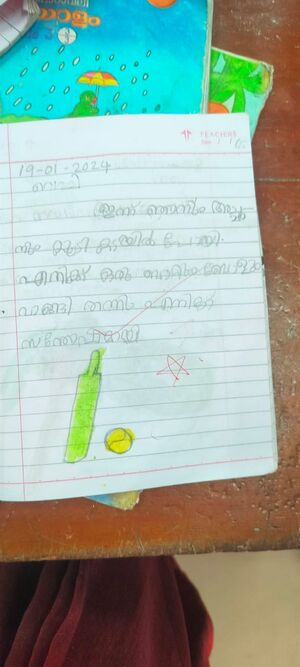 യാളം
TEACHERS
19-01-2024
വെള്ളി
ഇന്ന് ഞാനും അച്ഛ
നും കൂടി കടയിൽ പോയി.
എനിക്ക് ഒരു ബാറ്റും ബോളും
വാങ്ങി തന്നു എനിക്ക്
സന്തോഷമായി